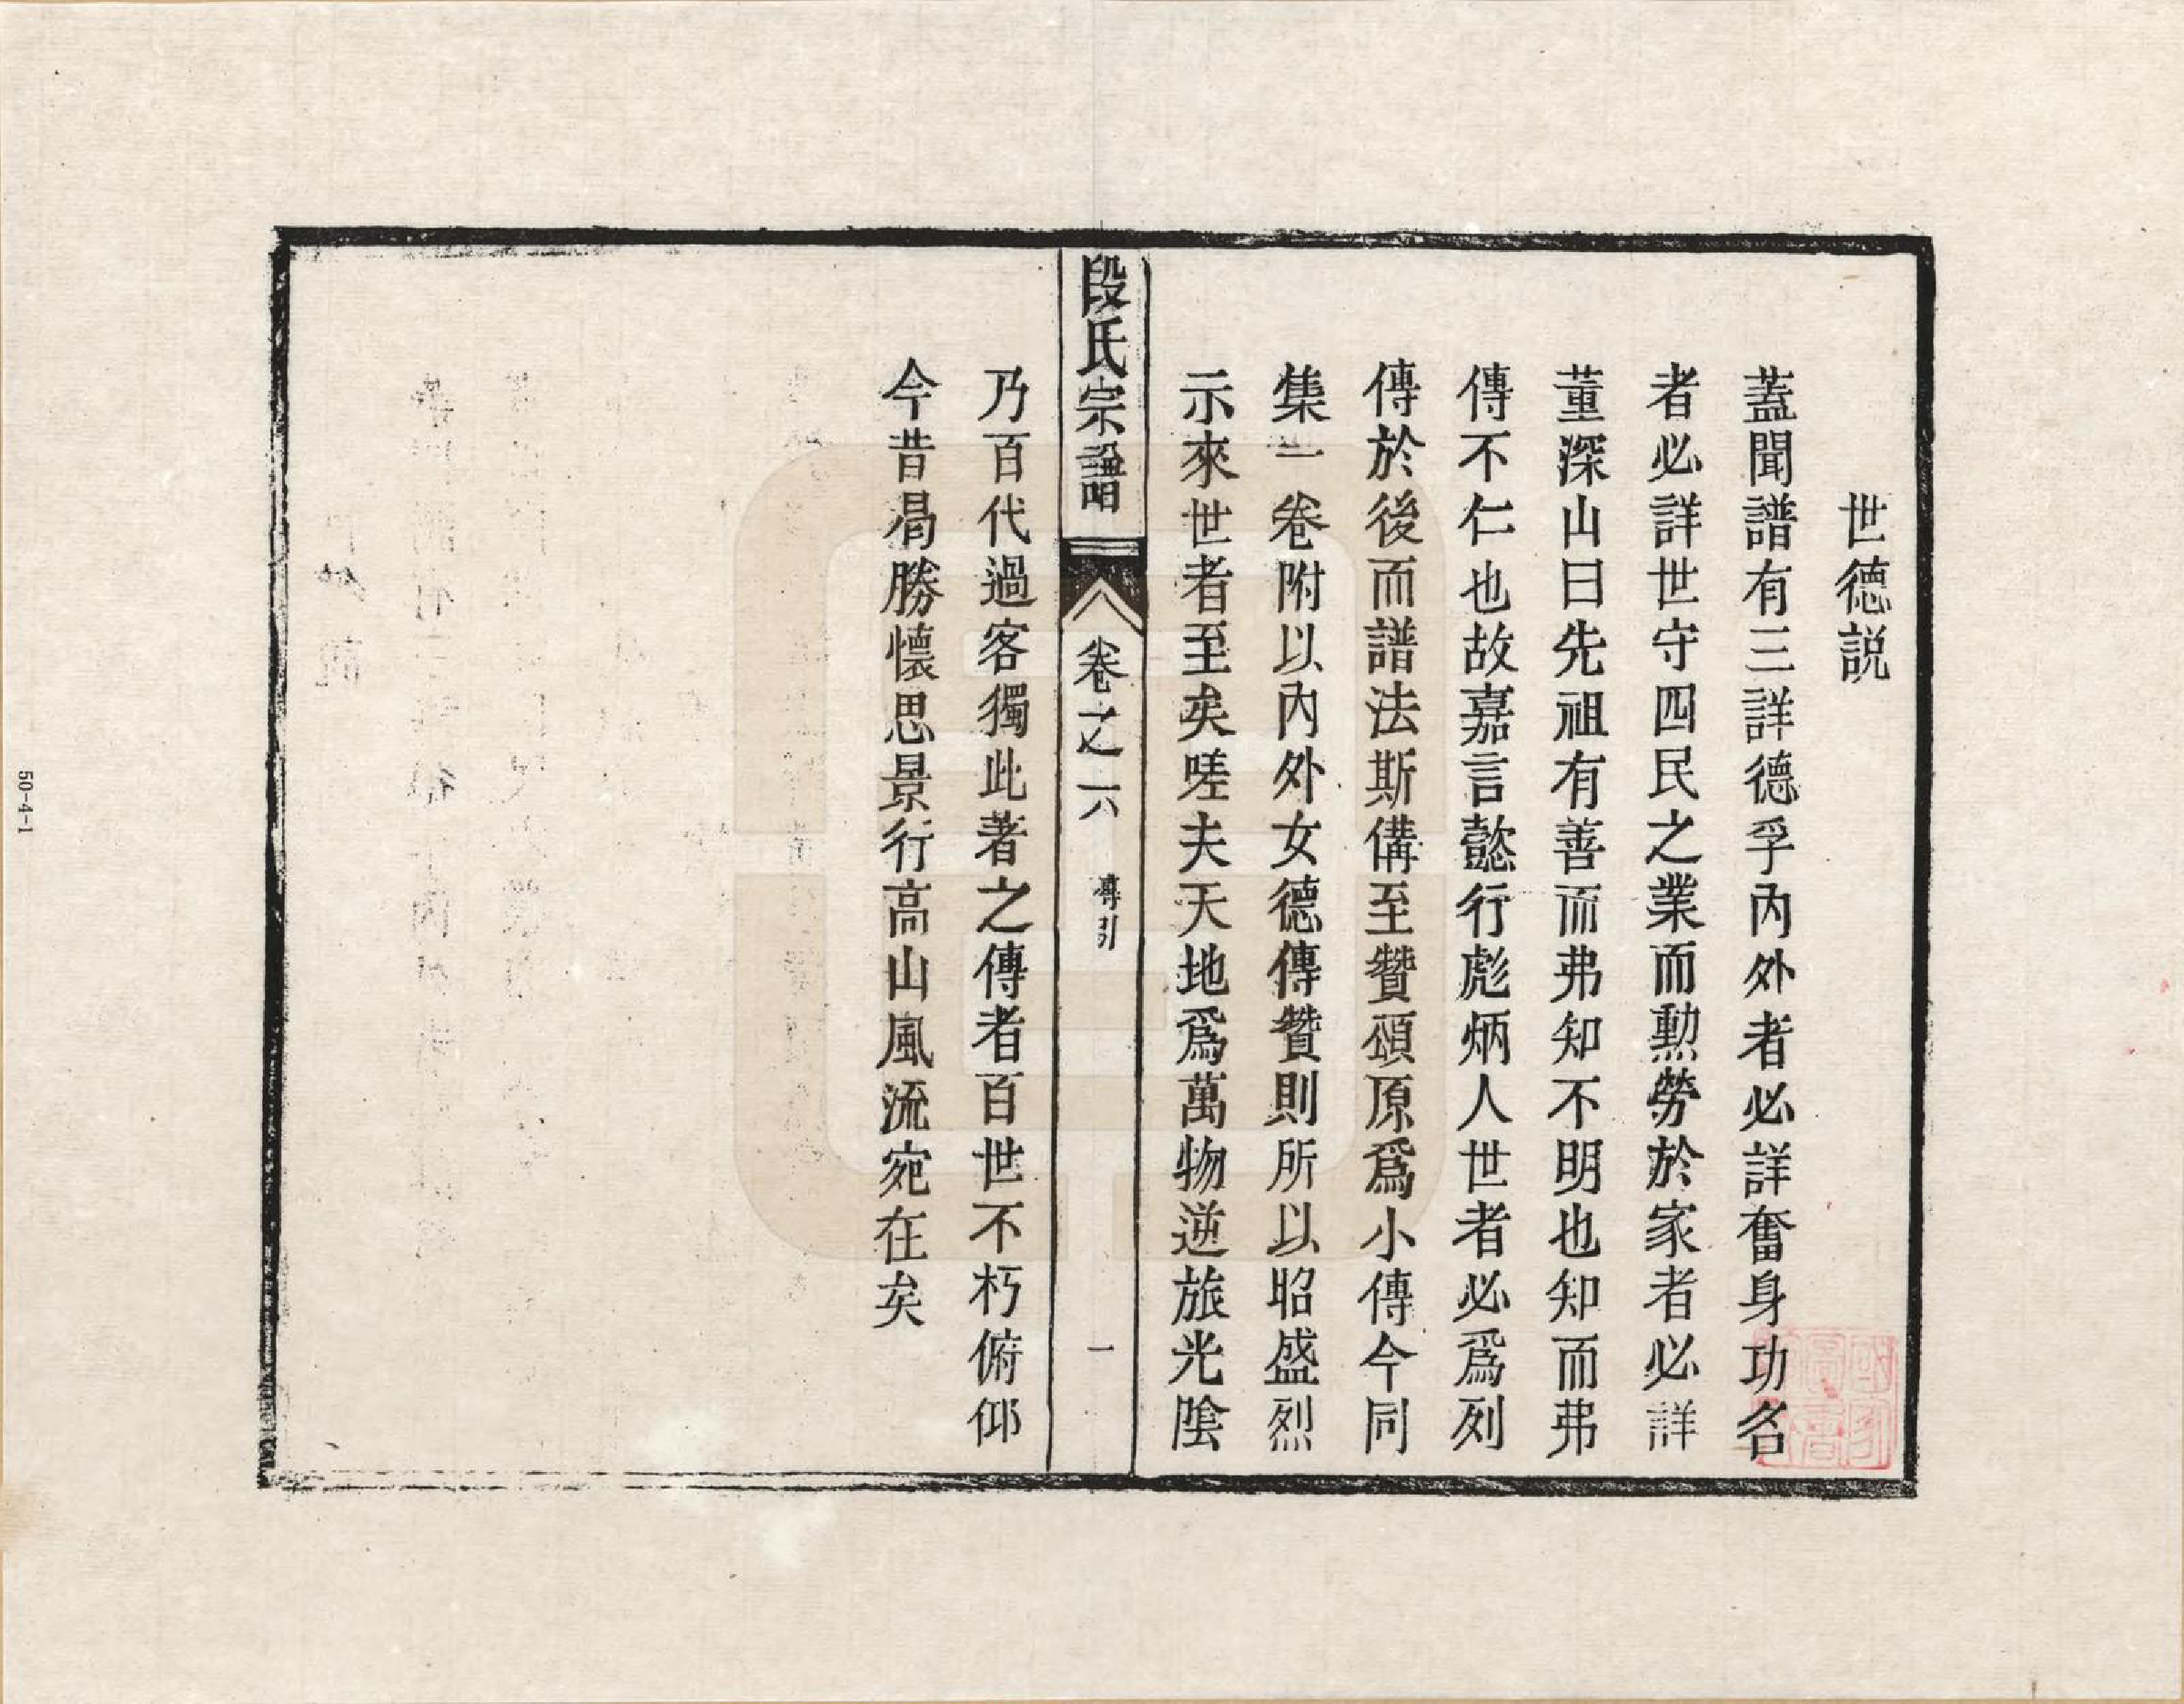 世德説
蓋聞譜有三詳德孚內外者必詳奮身功名
者必詳世守四民之業而勲勞於家者必詳
董深山曰先祖有善而弗知不明也知而弗
傳不仁也故嘉言懿行彪炳人世者必爲列
傳於後而譜法斯備至贊頌原爲小傳今同
集一卷附以內外女德傳贊則所以昭盛烈
示來世者至矣嗟夫天地爲萬物逆旅光陰
段氏宗譜
卷之六
傳引
一
乃百代過客獨此著之傳者百世不朽俯仰
今昔曷勝懷思景行高山風流宛在矣
50-4-1